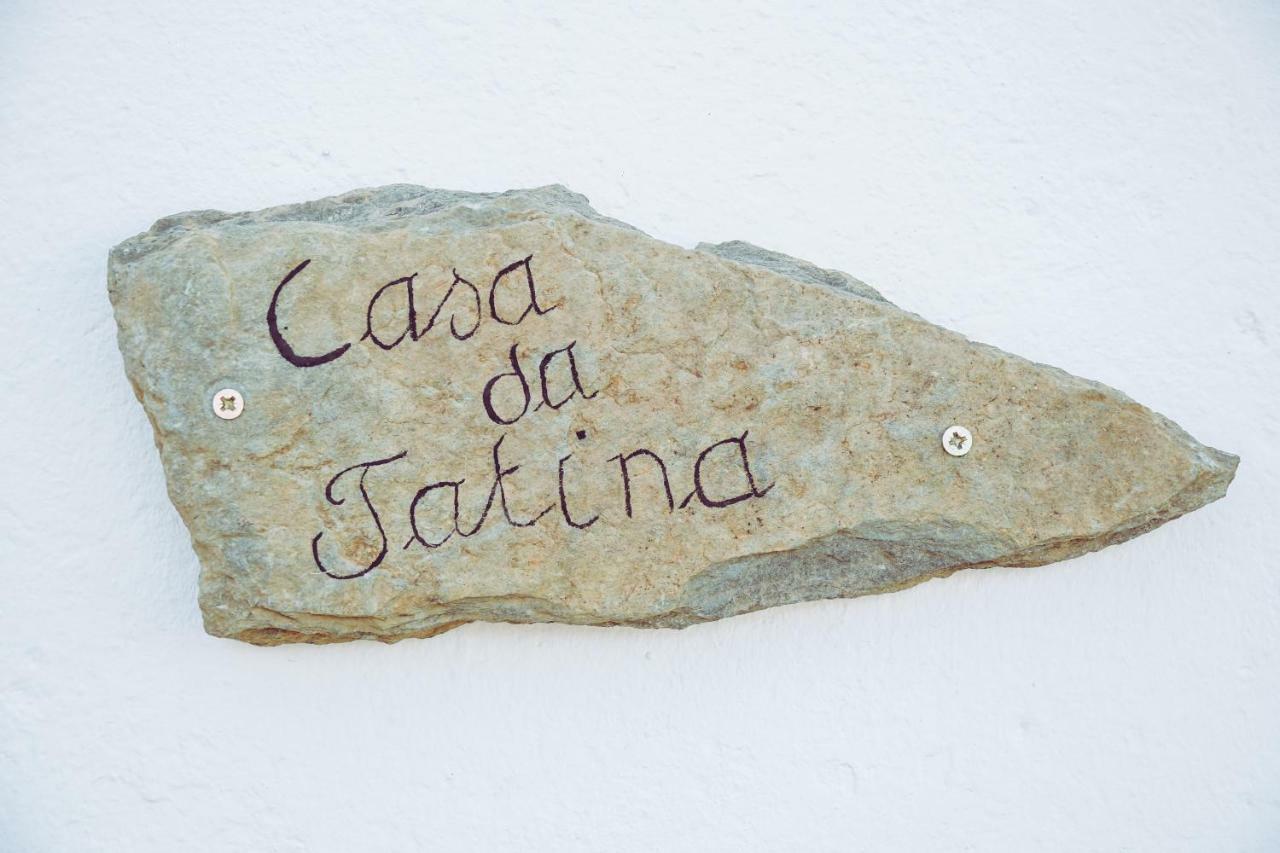 Casa
da
Tatina